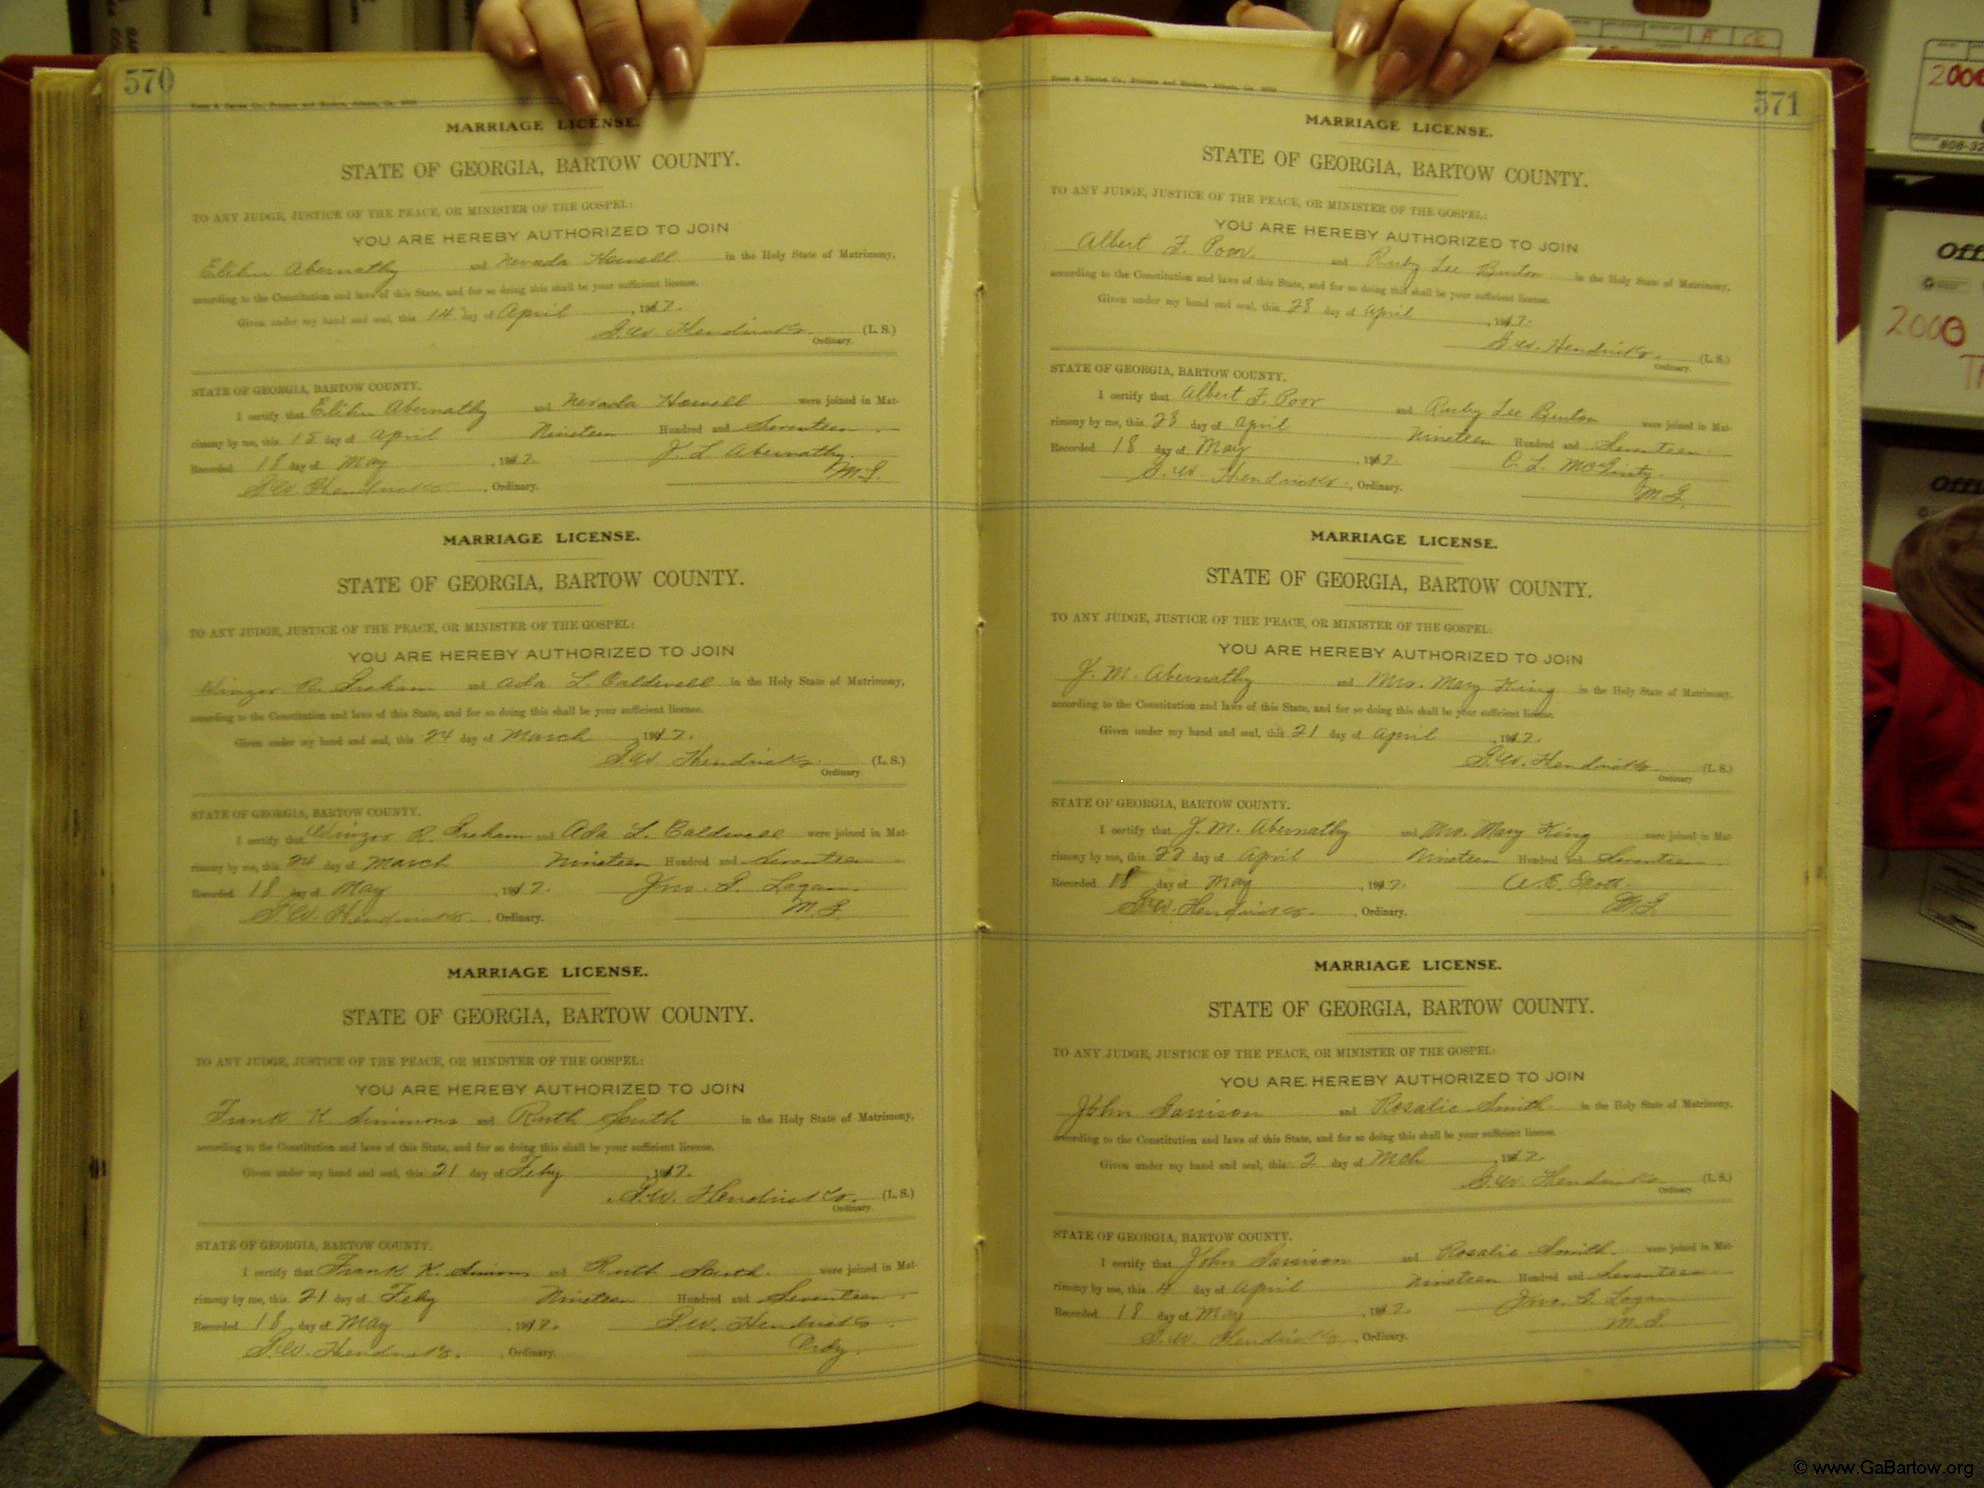 570
MARRIAGE LICENSE.
STATE OF GEORGIA, BARTOW COUNTY.
TO ANY JUDGE, JUSTICE OF THE PEACE, OR MINISTER OF THE GOSPEL:
YOU ARE HEREBY AUTHORIZED TO JOIN
Elihu Abernathy and Nevada Howell in the Holy State of Matrimony,
according to the Constitution and laws of this State, and for so doing this shall be your sufficient license.
Given under my hand and seal, this 14 day of April, 1917.
G.W. Hendricks (L. S.)
Ordinary.
STATE OF GEORGIA, BARTOW COUNTY.
I certify that Elihu Abernathy and Nevada Howell were joined in Mat-
rimony by me, this 15 day of April Nineteen Hundred and Seventeen
Recorded 18 day of May, 1917. J. L Abernathy
G.W. Hendricks, Ordinary. M.G.
MARRIAGE LICENSE.
STATE OF GEORGIA, BARTOW COUNTY.
TO ANY JUDGE, JUSTICE OF THE PEACE, OR MINISTER OF THE GOSPEL:
YOU ARE HEREBY AUTHORIZED TO JOIN
R. Graham and Ada L. Caldwell in the Holy State of Matrimony,
according to the Constitution and laws of this State, and for so doing this shall be your sufficient license.
Given under my hand and seal, this 24 day of March, 1917.
G.W. Hendricks (L. S.)
Ordinary
STATE OF GEORGIA, BARTOW COUNTY.
I certify that R. Graham and Ada L. Caldwell were joined in Mat-
rimony by me, this 24 day of March Nineteen Hundred and Seventeen
Recorded 18 day of May, 1917. Jno. S. Logan
G.W. Hendricks, Ordinary. M.G.
MARRIAGE LICENSE.
STATE OF GEORGIA, BARTOW COUNTY.
TO ANY JUDGE, JUSTICE OF THE PEACE, OR MINISTER OF THE GOSPEL:
YOU ARE HEREBY AUTHORIZED TO JOIN
Frank K. Simmons and Ruth South in the Holy State of Matrimony,
according to the Constitution and laws of this State, and for so doing this shall be your sufficient license.
Given under my hand and seal, this 21 day of Feby, 1917.
G.W. Hendricks. (L. S.)
Ordinary.
STATE OF GEORGIA, BARTOW COUNTY.
I certify that Frank K. Simons and Ruth South were joined in Mat-
rimony by me, this 21 day of Feby Nineteen Hundred and Seventeen
Recorded 18 day of May, 1917. G.W. Hendricks
G.W. Hendricks, Ordinary. Ordy.
571
MARRIAGE LICENSE.
STATE OF GEORGIA, BARTOW COUNTY.
TO ANY JUDGE, JUSTICE OF THE PEACE, OR MINISTER OF THE GOSPEL:
YOU ARE HEREBY AUTHORIZED TO JOIN
Albert F. Poor and Ruby Lee Benton in the Holy State of Matrimony,
according to the Constitution and laws of this State, and for so doing this shall be your sufficient license.
Given under my hand and seal, this 28 day of April, 1917.
G.W. Hendricks. (L. S.)
Ordinary.
STATE OF GEORGIA, BARTOW COUNTY.
I certify that Albert F. Poor and Ruby Lee Benton were joined in Mat-
rimony by me, this 28 day of April Nineteen Hundred and Seventeen
Recorded 18 day of May, 1917. C. L. McGinty
G.W. Hendricks, Ordinary. M.G.
MARRIAGE LICENSE.
STATE OF GEORGIA, BARTOW COUNTY.
TO ANY JUDGE, JUSTICE OF THE PEACE, OR MINISTER OF THE GOSPEL:
YOU ARE HEREBY AUTHORIZED TO JOIN
J. M. Abernathy and Mrs. Mary King in the Holy State of Matrimony,
according to the Constitution and laws of this State, and for so doing this shall be your sufficient license.
Given under my hand and seal, this 21 day of April, 1917.
G.W. Hendricks (L. S.)
Ordinary
STATE OF GEORGIA, BARTOW COUNTY.
I certify that J. M. Abernathy and Mrs. Mary King were joined in Mat-
rimony by me, this 22 day of April Nineteen Hundred and Seventeen
Recorded 18 day of May, 1917. A.E. Scott
G.W. Hendricks, Ordinary. M.G.
MARRIAGE LICENSE.
STATE OF GEORGIA, BARTOW COUNTY.
TO ANY JUDGE, JUSTICE OF THE PEACE, OR MINISTER OF THE GOSPEL:
YOU ARE HEREBY AUTHORIZED TO JOIN
John Garrison and Rosalie Smith in the Holy State of Matrimony,
according to the Constitution and laws of this State, and for so doing this shall be your sufficient license.
Given under my hand and seal, this 2 day of Mch, 1917.
G.W. Hendricks (L. S.)
Ordinary
STATE OF GEORGIA, BARTOW COUNTY.
I certify that John Garrison and Rosalie Smith were joined in Mat-
rimony by me, this 4 day of April Nineteen Hundred and Seventeen
Recorded 18 day of May, 1917. Jno. S. Logan
G.W. Hendricks, Ordinary. M.G.
© www.GaBartow.org